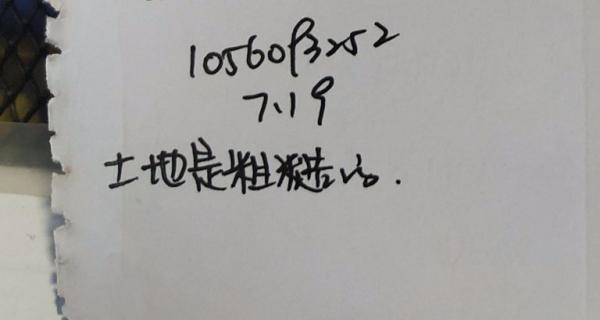 1056093252
7.19
土地是粗糙的.